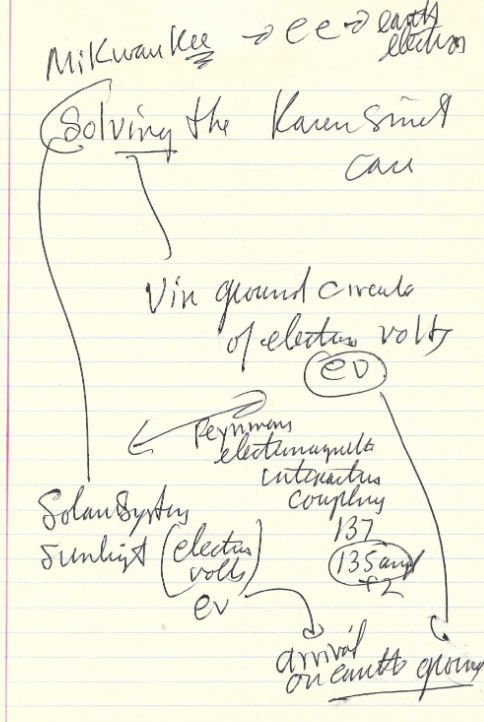 Mikwaukee → ee → earth
electron
Solving the Karen Smet
case
Vin ground circuits
of electron volts
ev
Feynmans
electromagnetic
interactions
coupling
137
135 and
+2
Solar System
Sunlight (electron
volts)
ev
arrival
on earth ground